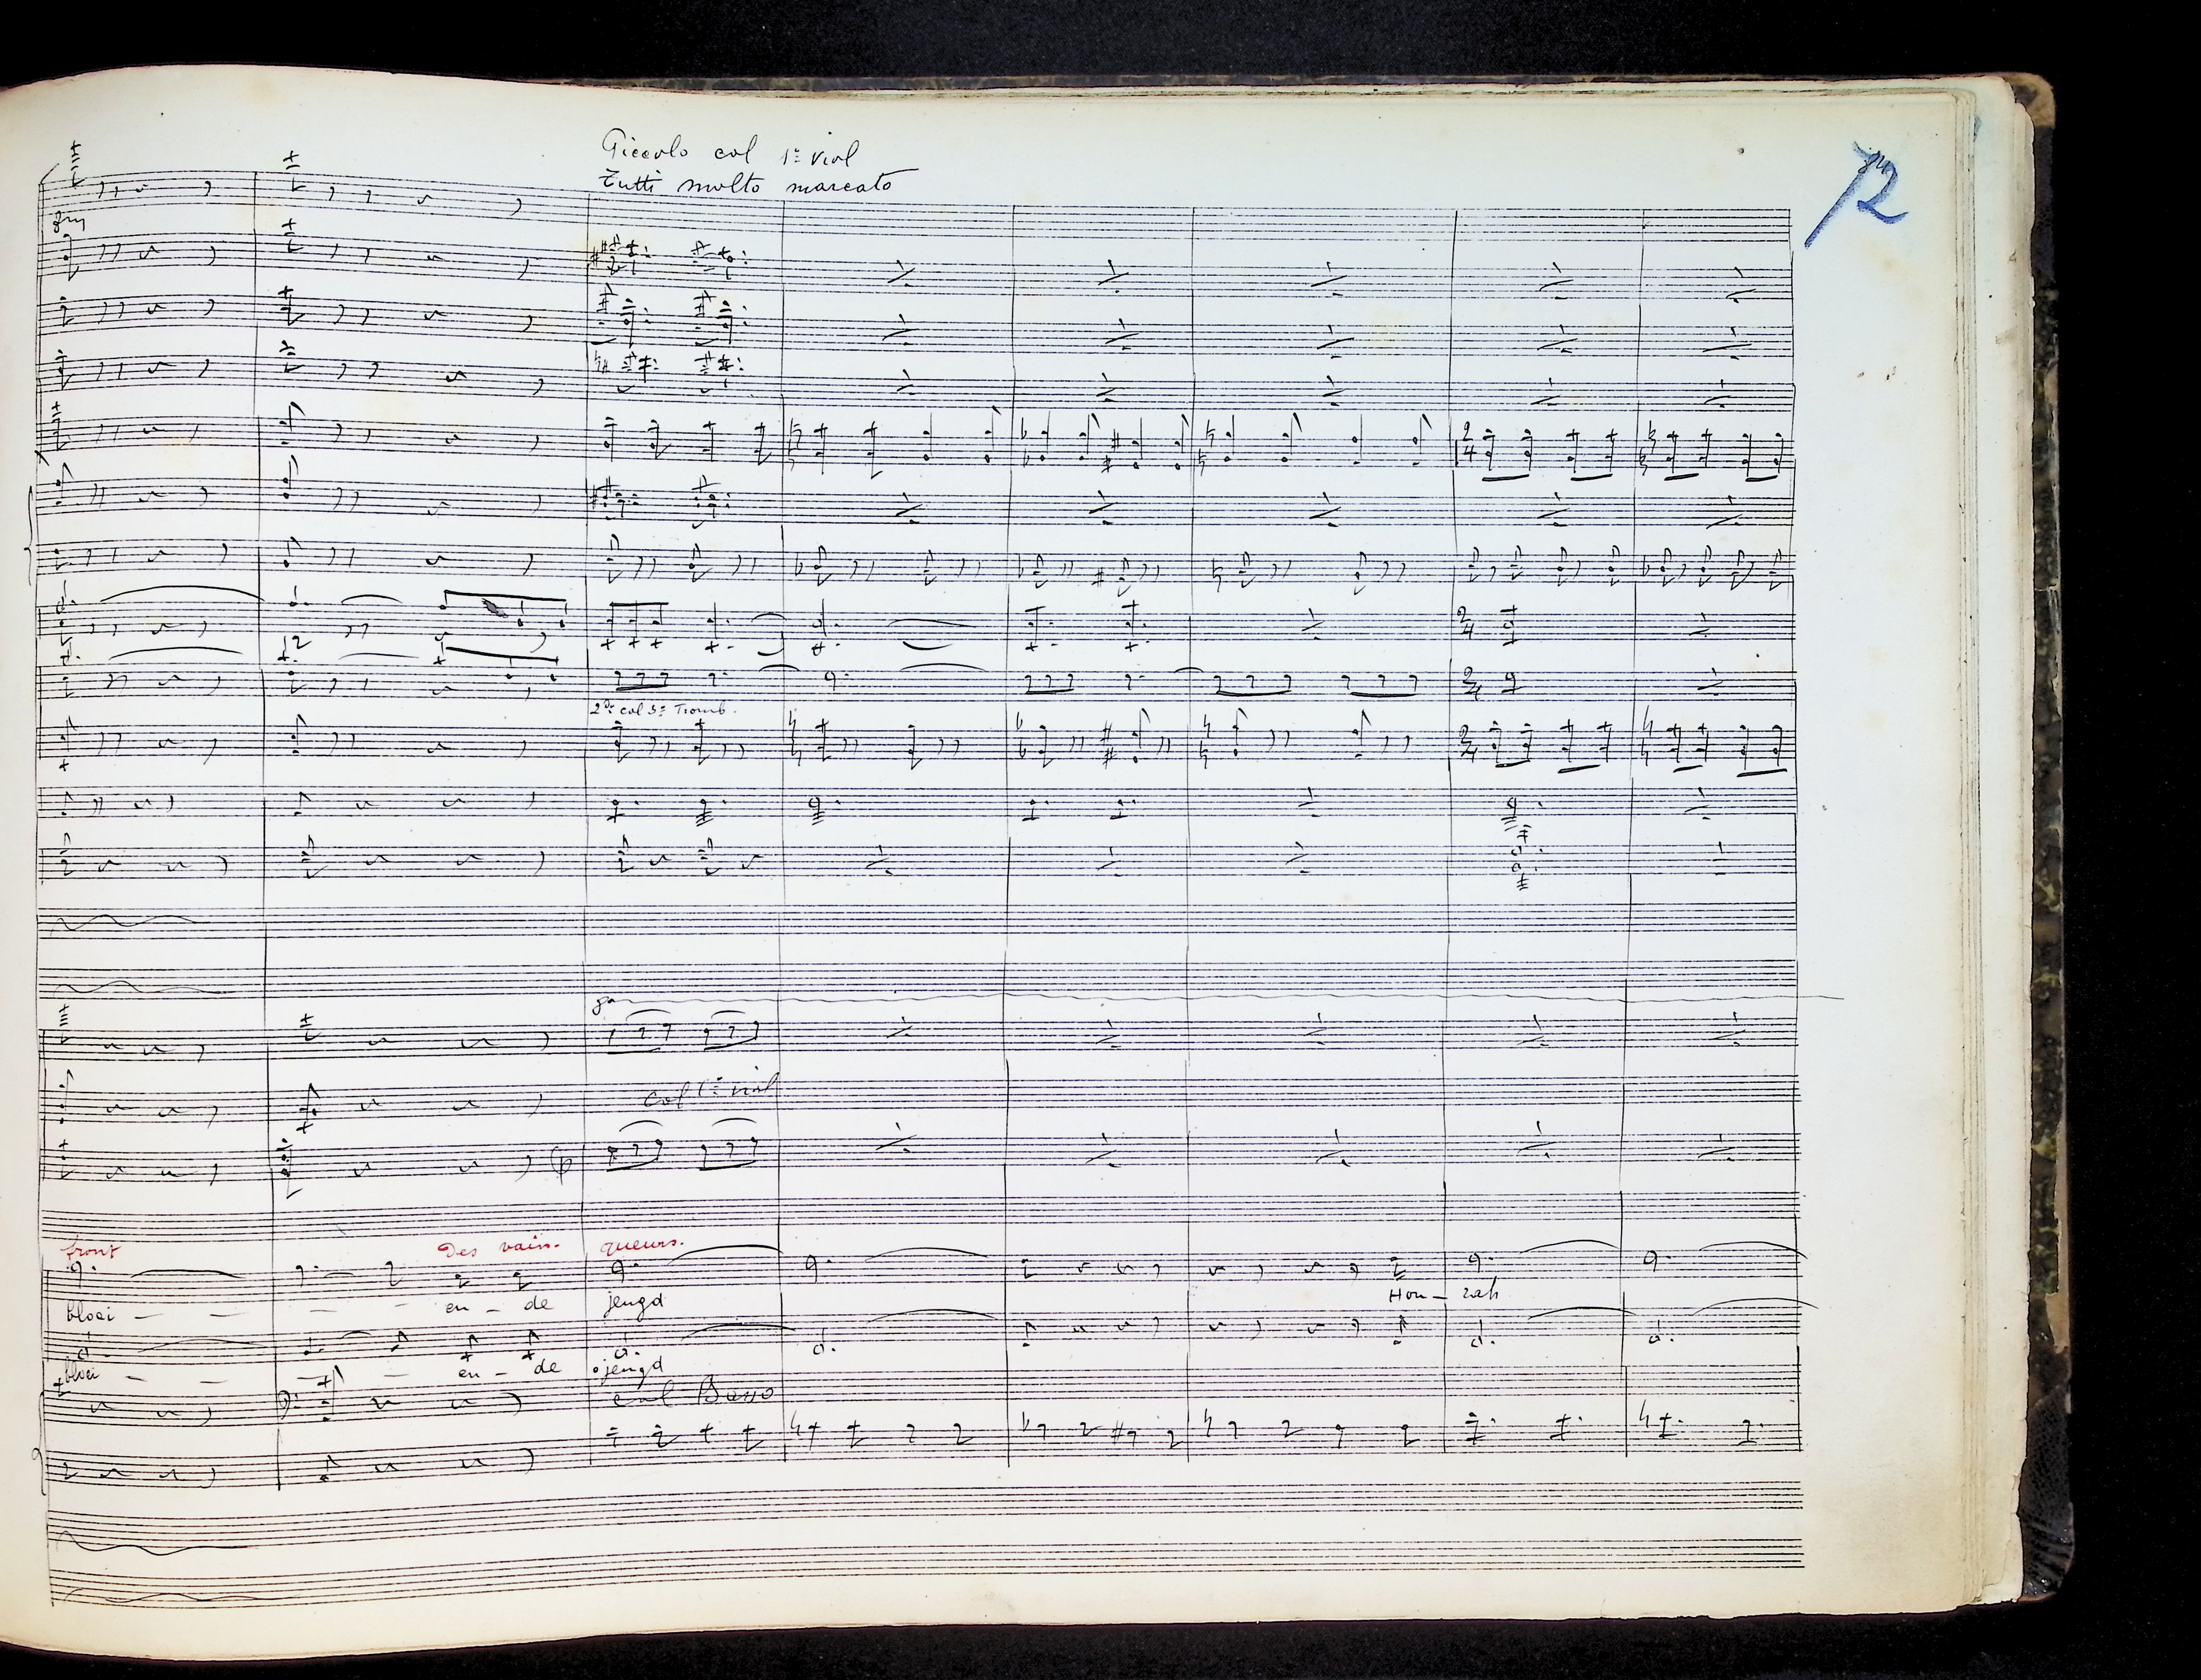 Piccolo col 1º viol
Tutti molto marcato
72
2º: col 3º Tromb.
8a
col 1º viol
front Des vain- queurs.
bloei - - - - en - de jeugd Hou - zah
bloei - - - - en - de jeugd
col Basso